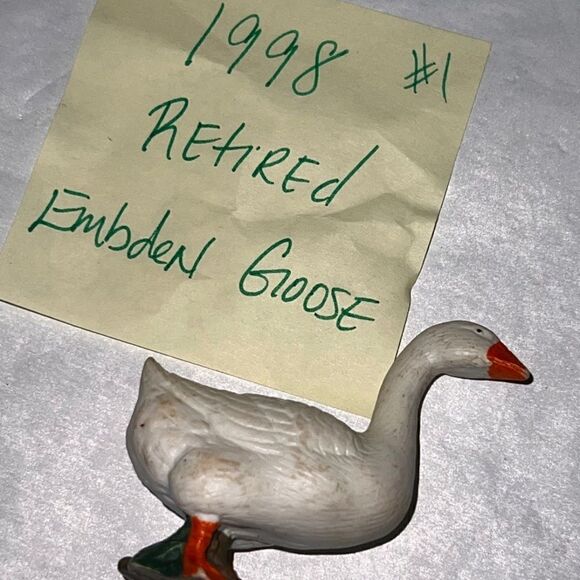 1998 #1
REtiREd
EmbdEN GOOSE